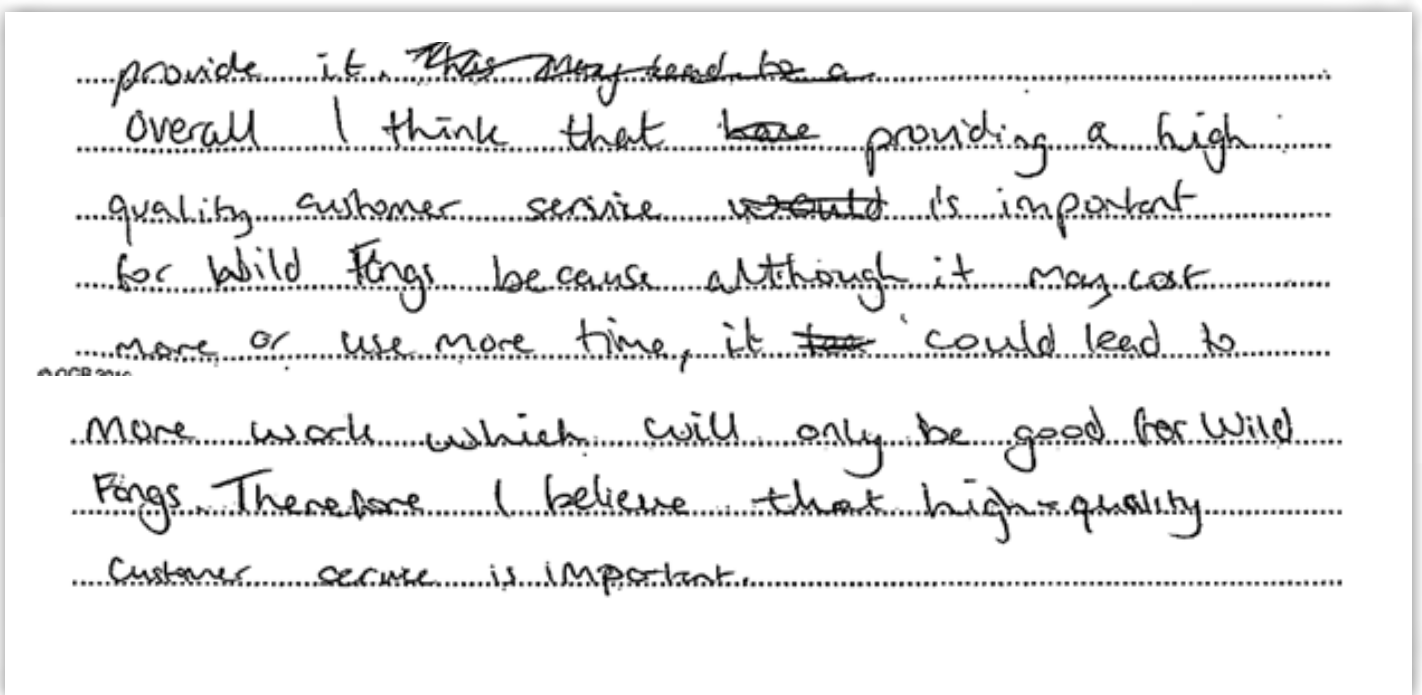 provide it. This may lead to a
Overall I think that have providing a high
quality customer service would is important
for Wild Fangs because although it may cost
more or use more time, it could lead to
© OCR 2019
more work which will only be good for Wild
Fangs. Therefore I believe that high-quality
customer service is important.